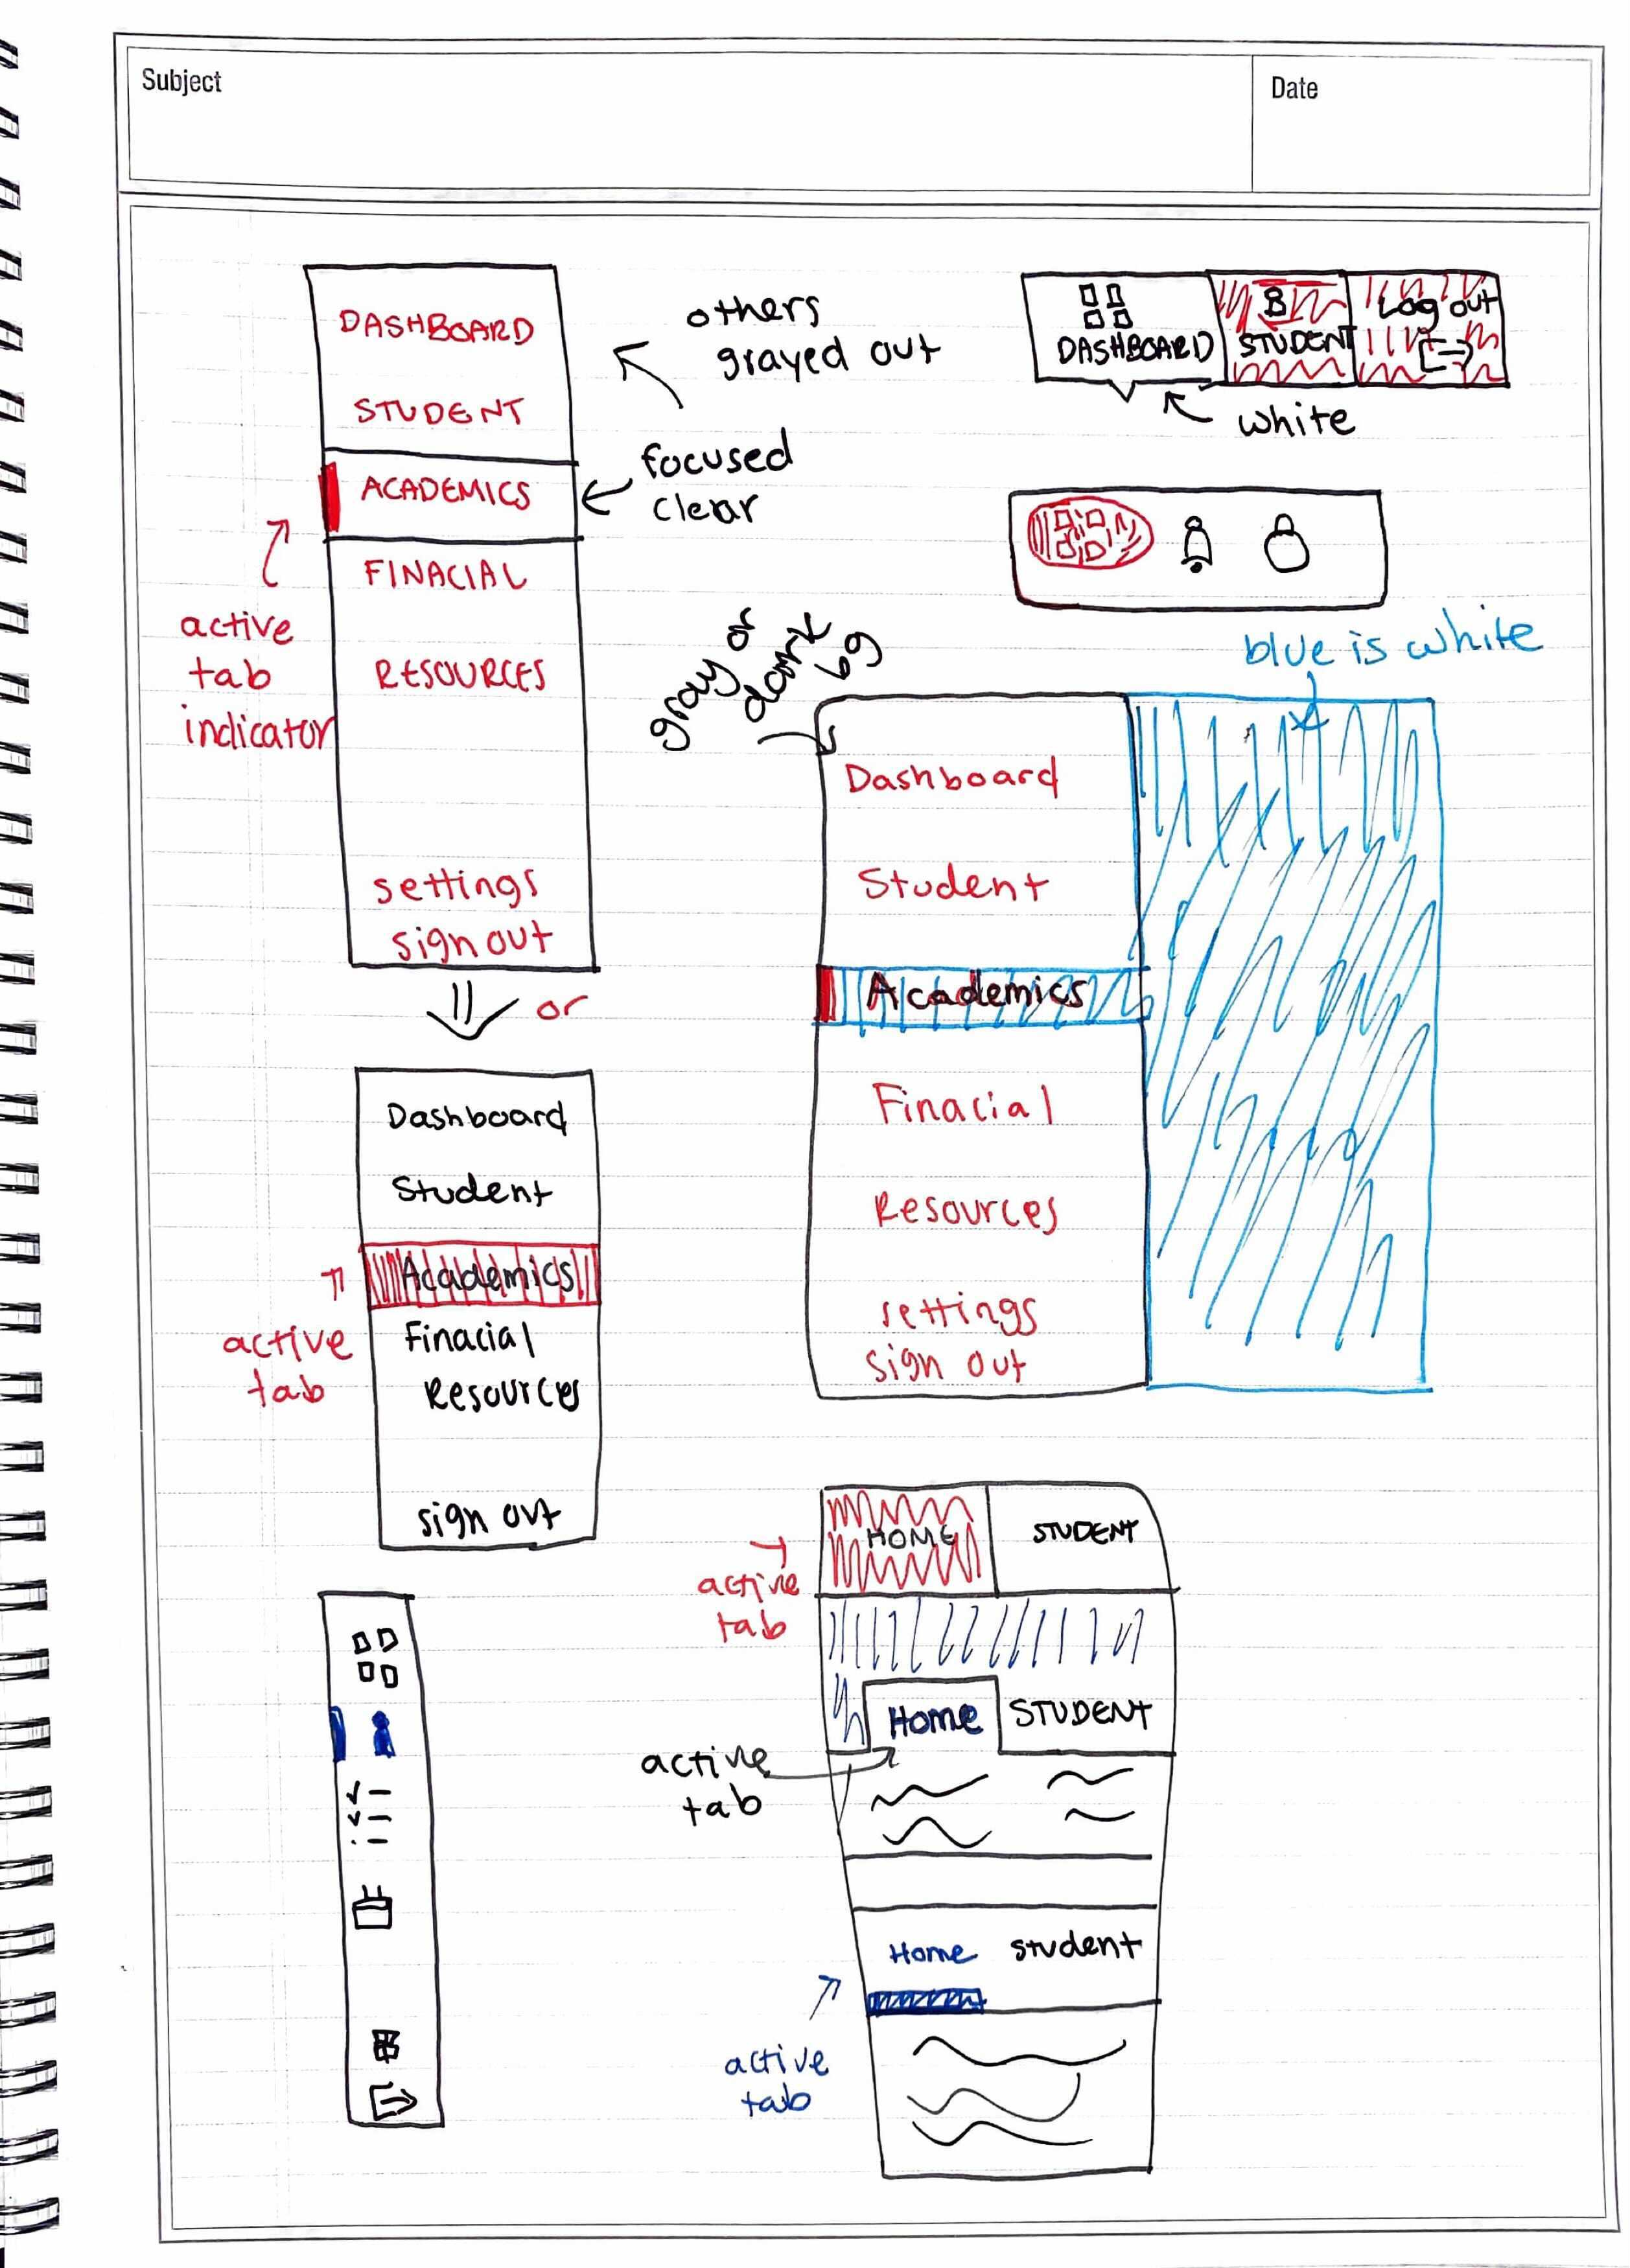 Subject
Date
DASHBOARD
STUDENT
ACADEMICS
FINACIAL
RESOURCES
settings
sign out
others
grayed out
focused
clear
active
tab
indicator
or
DASHBOARD
STUDENT
Log out
white
blue is white
gray or
dark
bg
Dashboard
Student
Academics
Finacial
Resources
settings
sign out
Dashboard
Student
Academics
Finacial
Resources
sign out
active
tab
HOME
STUDENT
active
tab
Home
STUDENT
active
tab
Home
student
active
tab